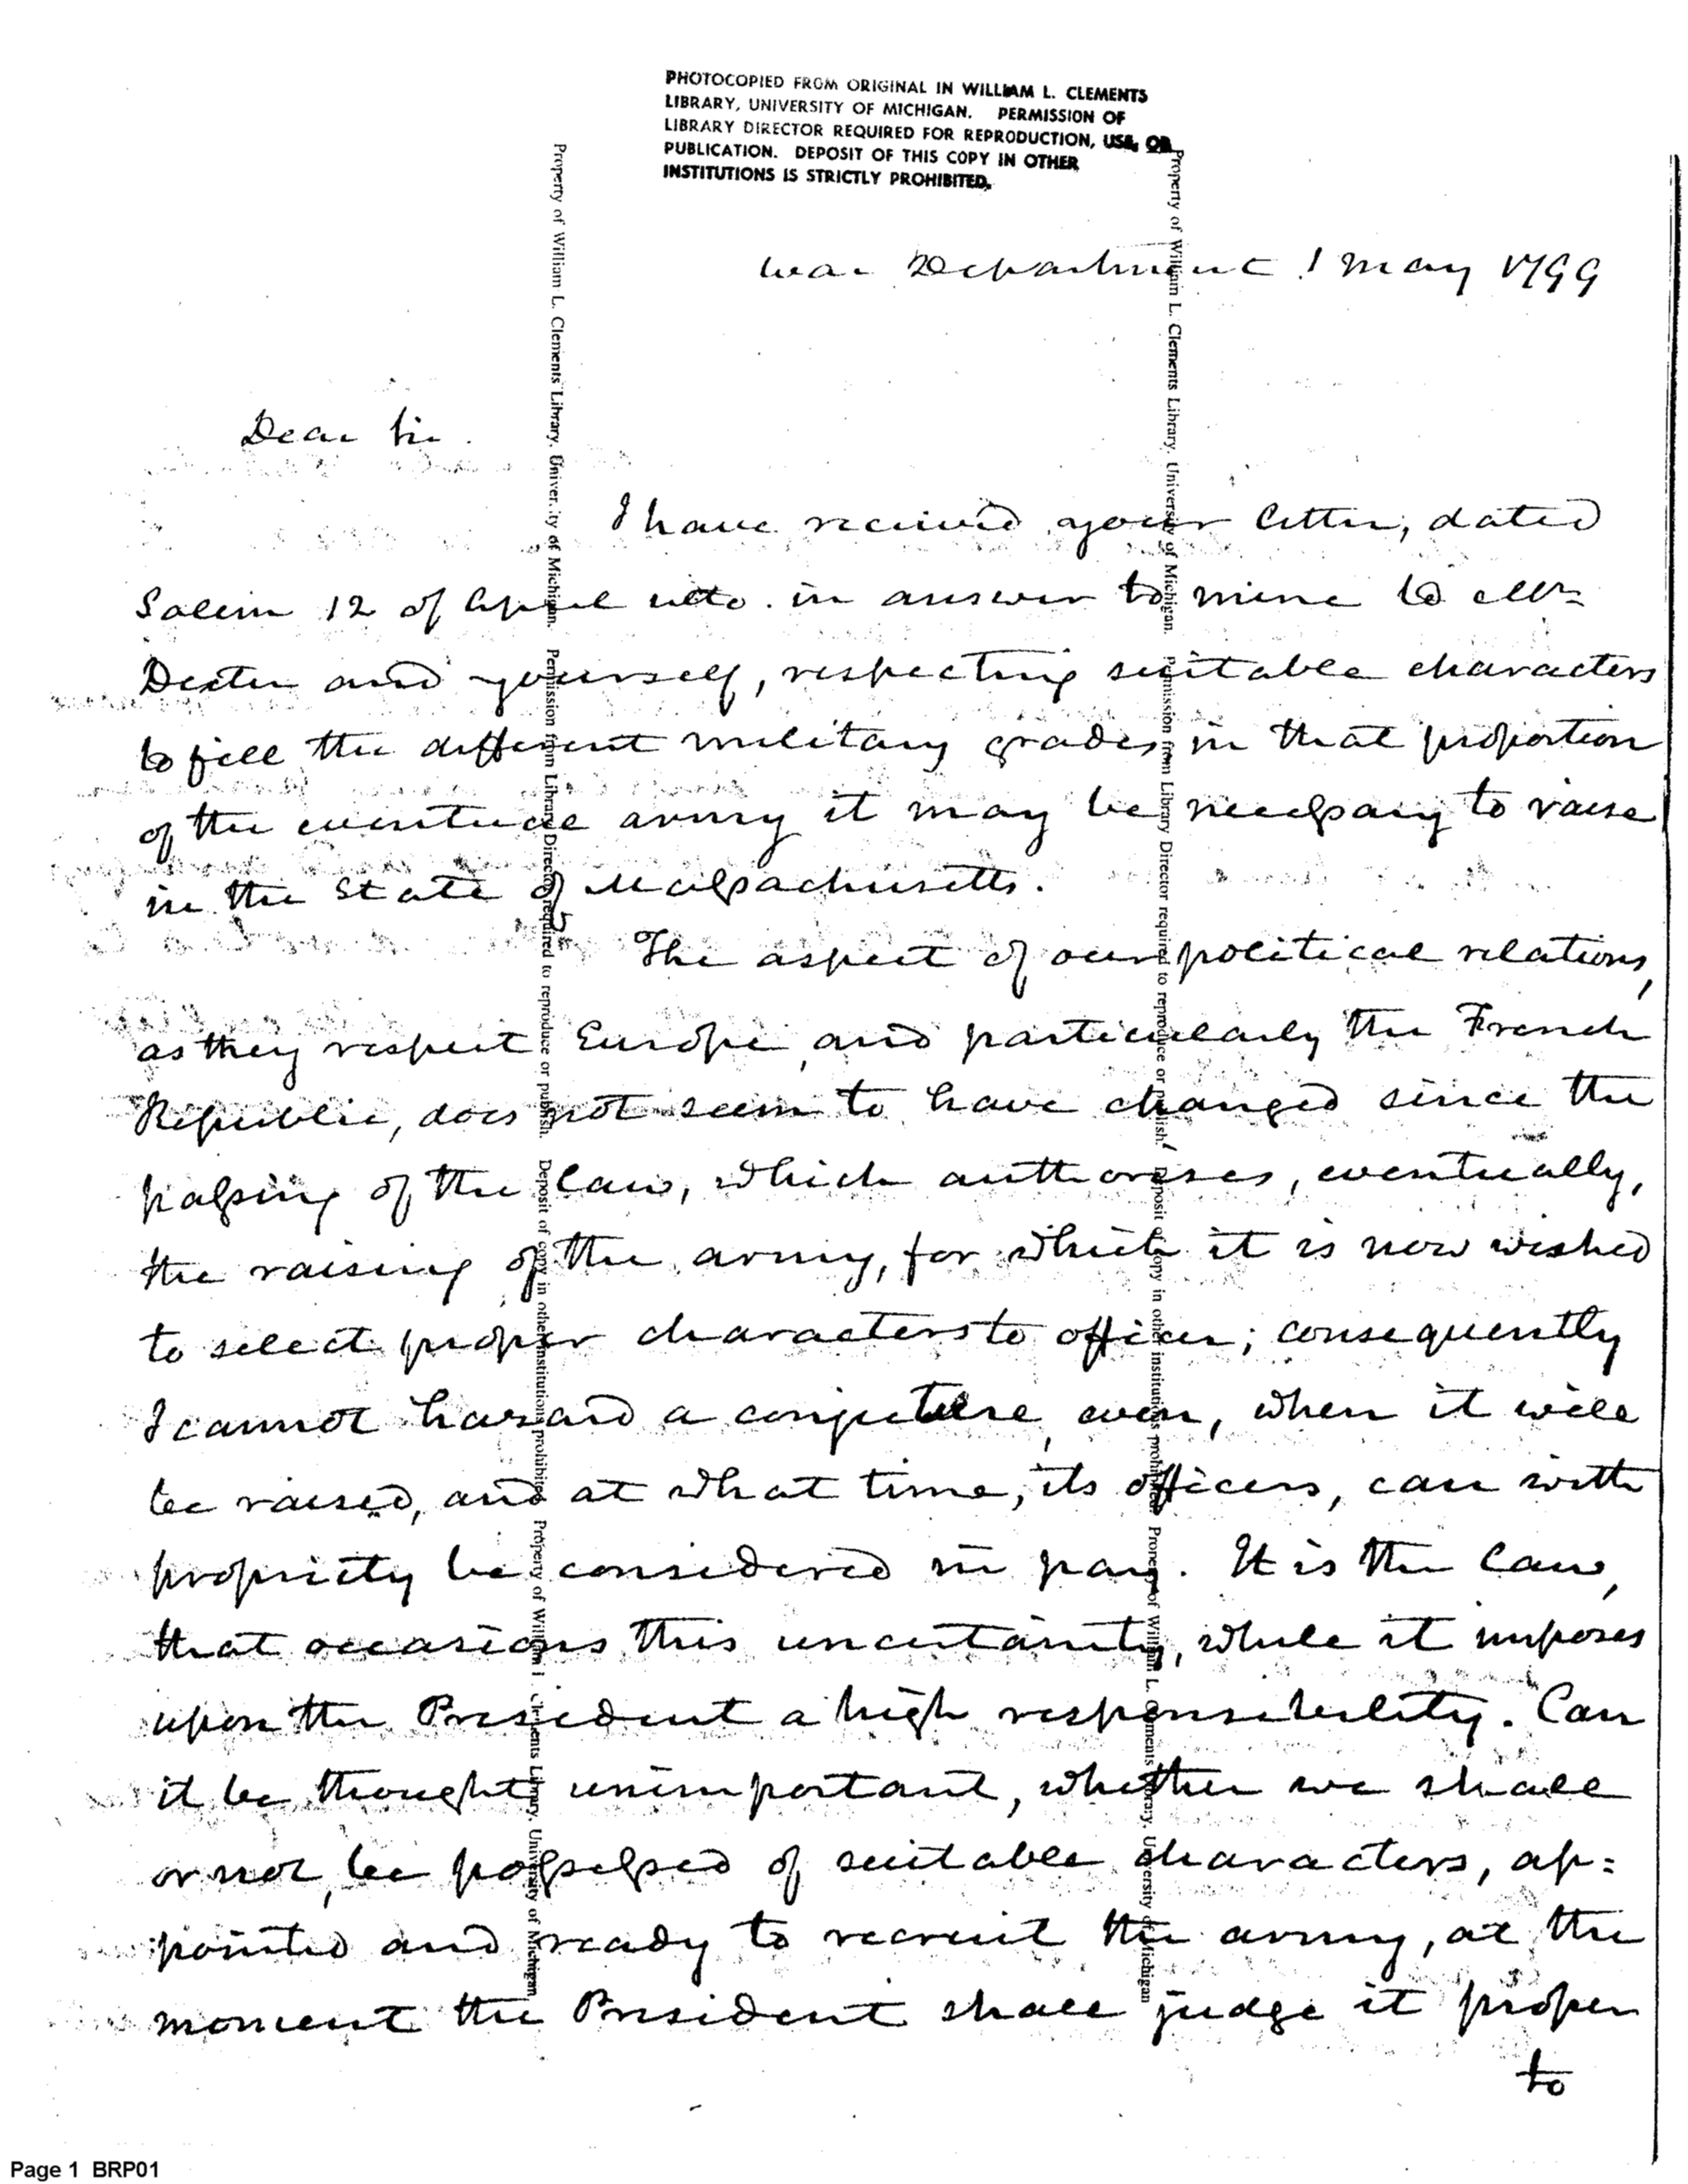 PHOTOCOPIED FROM ORIGINAL IN WILLIAM L. CLEMENTS
LIBRARY, UNIVERSITY OF MICHIGAN. PERMISSION OF
LIBRARY DIRECTOR REQUIRED FOR REPRODUCTION, USE, OR
PUBLICATION. DEPOSIT OF THIS COPY IN OTHER
INSTITUTIONS IS STRICTLY PROHIBITED.
War Department 1 May 1799
Dear Sir.
I have received your letter, dated
Salem 12 of April ulto. in answer to mine to Mr
Dexter and yourself, respecting suitable characters
to fill the different military grades in that proportion
of the eventual army it may be necessary to raise
in the State of Massachusetts.
The aspect of our political relations,
as they respect Europe, and particularly the French
Republic, does not seem to have changed since the
passing of the law, which authorises, eventually,
the raising of the army, for which it is now wished
to select proper characters to officer; consequently
I cannot hazard a conjecture, even, when it will
be raised, and at what time, its officers, can with
propriety be considered in pay. It is the law,
that occasions this uncertainty, while it imposes
upon the President a high responsibility. Can
it be thought unimportant, whether we shall
or not, be possessed of suitable characters, ap=
pointed and ready to recruit the army, at the
moment the President shall judge it proper
to
Property of William L. Clements Library, University of Michigan. Permission from Library Director required to reproduce or publish. Deposit of copy in other institutions prohibited. Property of William L. Clements Library, University of Michigan
Property of William L. Clements Library, University of Michigan. Permission from Library Director required to reproduce or publish. Deposit of copy in other institutions prohibited. Property of William L. Clements Library, University of Michigan
Page 1 BRP01